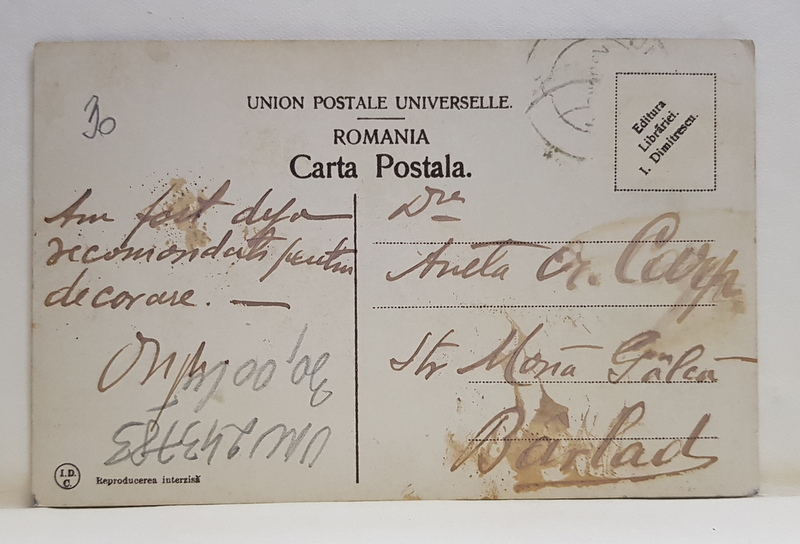 30
UNION POSTALE UNIVERSELLE.
ROMANIA
Carta Postala.
Editura
Librăriei.
I. Dimitrescu.
Am fost deja
recomandati pentru
decorare. —
Dnei
Aneta Cr. Carp
Str Moșia Gâlcă
Bârlad
20,00 lei
VAU 243783
I.D.
C.
Reproducerea interzisă